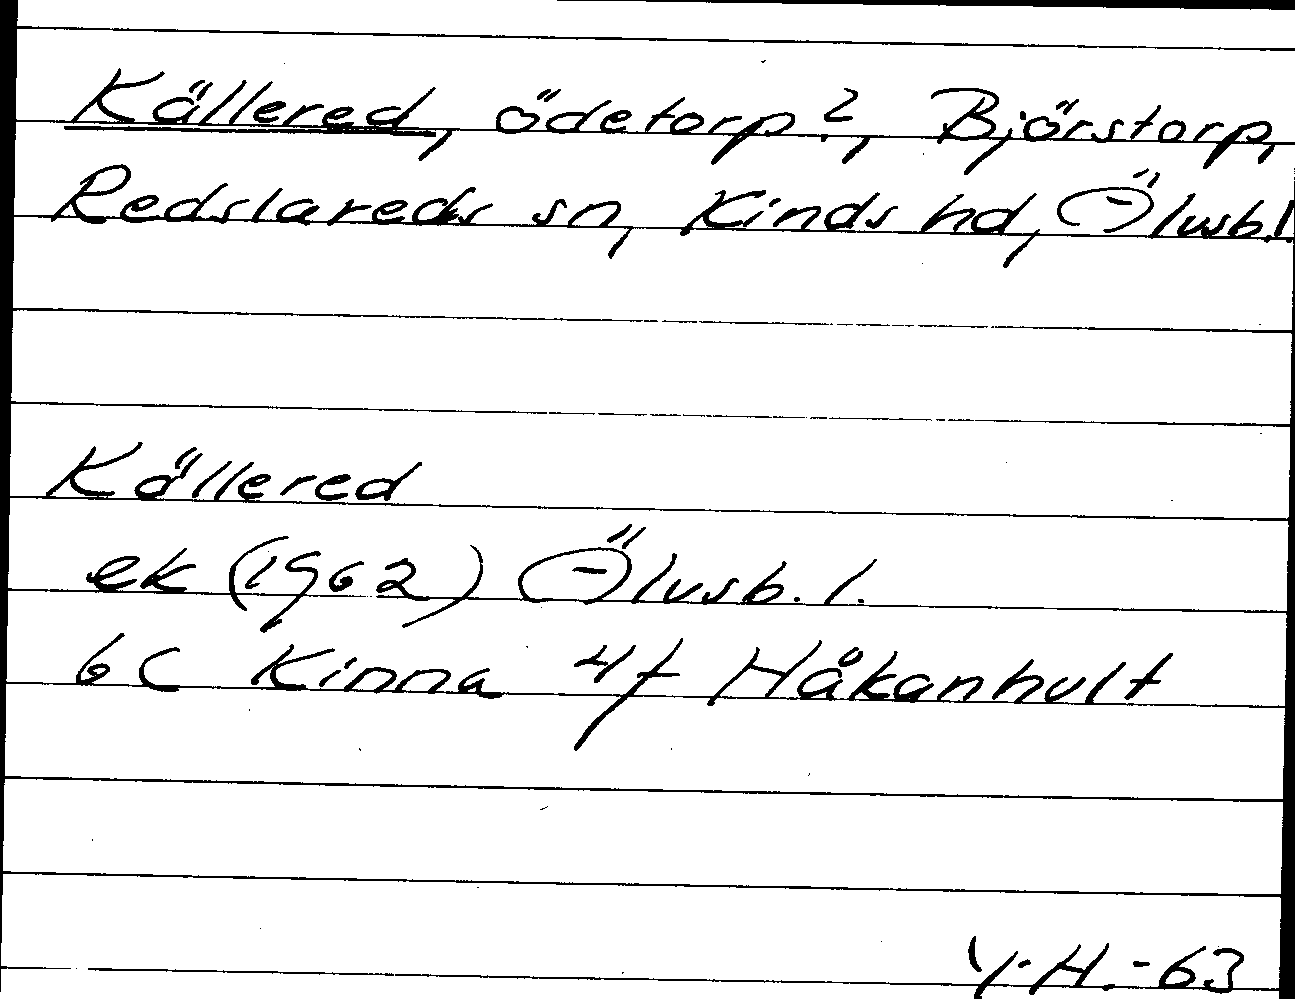 Källered, ödetorp?, Björstorp,
Redslareds sn, Kinds hd, Älvsb.l.
Källered
ek (1962) Älvsb. l.
6C Kinna 4f Håkanhult
Y.H.-63